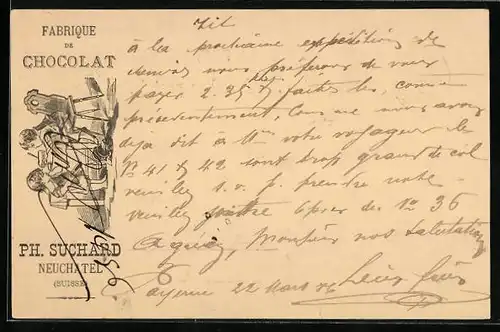 FABRIQUE
DE
CHOCOLAT
PH. SUCHARD
NEUCHATEL
(SUISSE)
à la prochaine expédition de
nous préférons de vous
payer 2.25 faites les, comme
précédemment, Comme nous avons
déjà dit à Mr votre voyageur le
No 41 & 42 sont trop grand de col
veuillez s. v. p. prendre note
veuillez 6 de No 36
Agréez, Monsieur nos salutations
Payerne 22 Mars